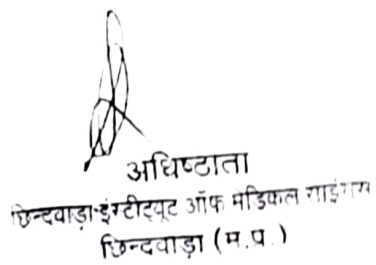 अधिष्टाता
छिन्दवाड़ा इंस्टीट्यूट ऑफ मेडिकल साइंसस
छिन्दवाड़ा (म.प्र.)